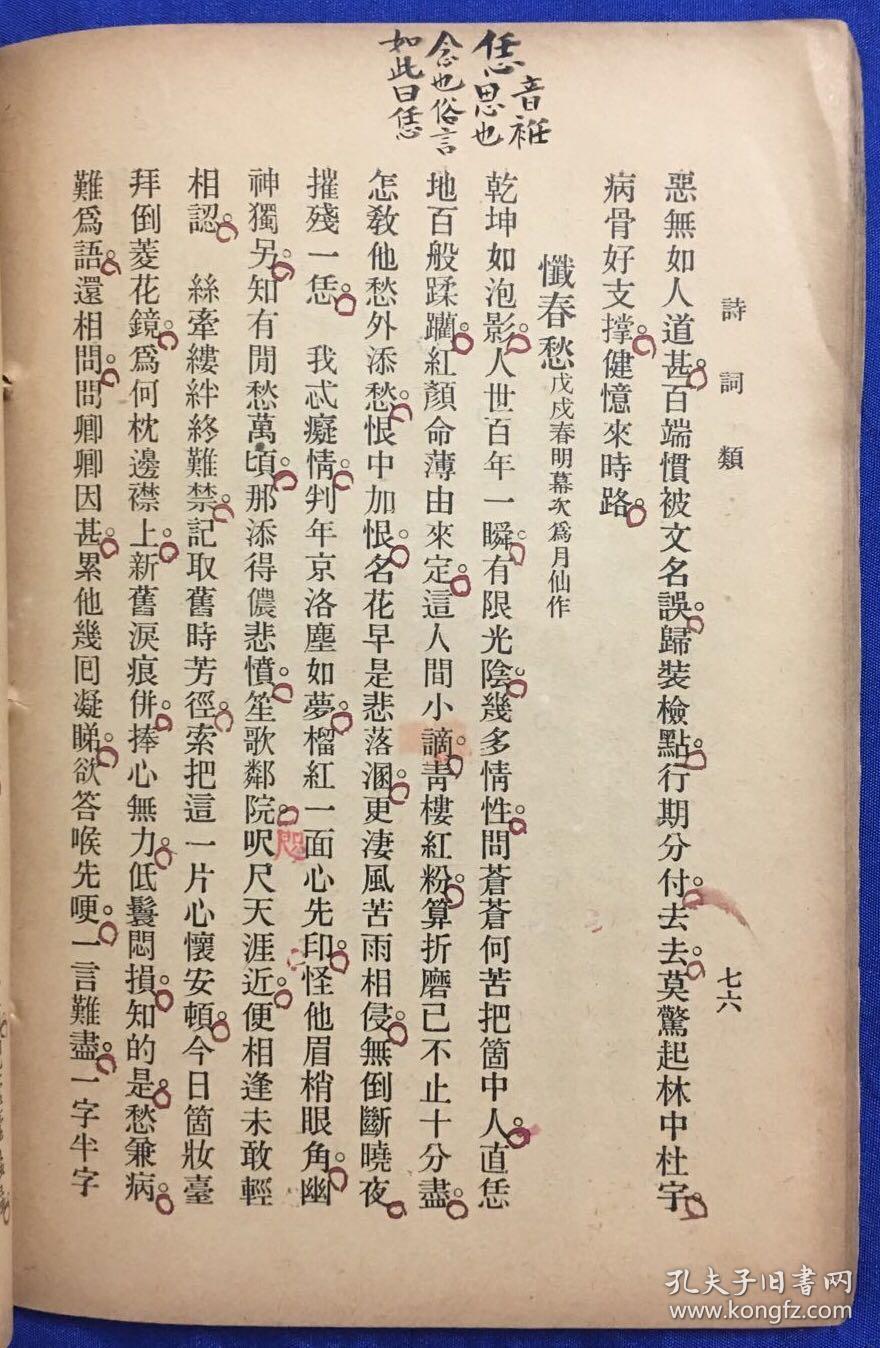 詩詞類 七六
惡無如人道甚百端慣被文名誤歸裝檢點行期分付去去莫驚起林中杜宇
病骨好支撐健憶來時路
懺春愁 戊戍春明幕次爲月仙作
乾坤如泡影人世百年一瞬有限光陰幾多情性問蒼蒼何苦把箇中人直恁
地百般蹂躪紅顏命薄由來定這人間小謫靑樓紅粉算折磨已不止十分盡
怎敎他愁外添愁恨中加恨名花早是悲落溷更淒風苦雨相侵無倒斷曉夜
摧殘一恁 我忒癡情判年京洛塵如夢榴紅一面心先印怪他眉梢眼角幽
神獨另知有閒愁萬頃那添得儂悲憤笙歌鄰院呎尺天涯近便相逢未敢輕
咫
相認 絲牽縷絆終難禁記取舊時芳徑索把這一片心懷安頓今日箇妝臺
拜倒菱花鏡爲何枕邊襟上新舊淚痕倂捧心無力低鬟悶損知的是愁兼病
難爲語還相問問卿卿因甚累他幾囘凝睇欲答喉先哽一言難盡一字半字
音袵
恁思也
念也俗言
如此曰恁
孔夫子旧书网
www.kongfz.com